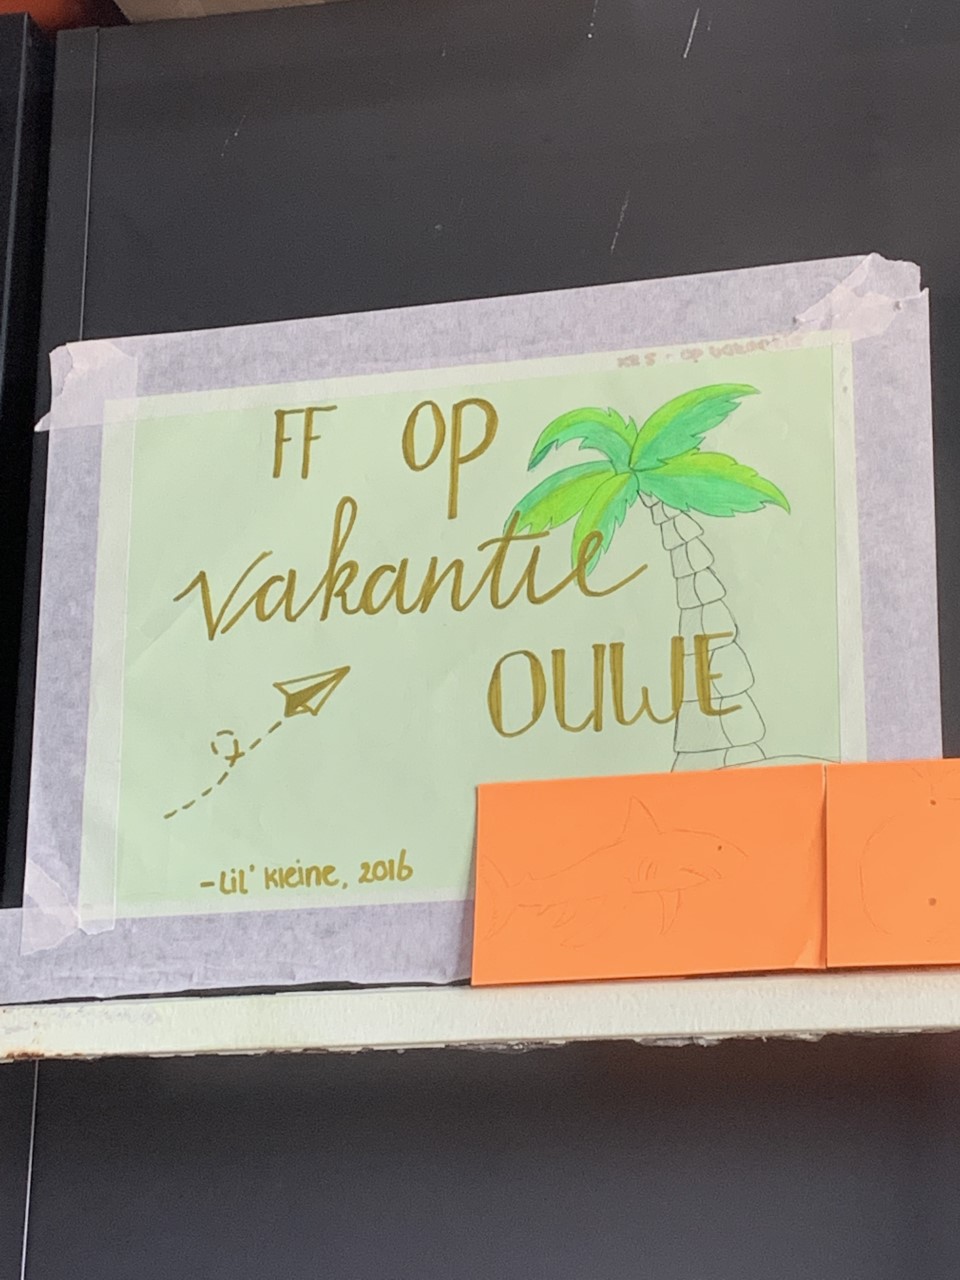 FF OP
Vakantie
OUWE
-Lil' Kleine, 2016